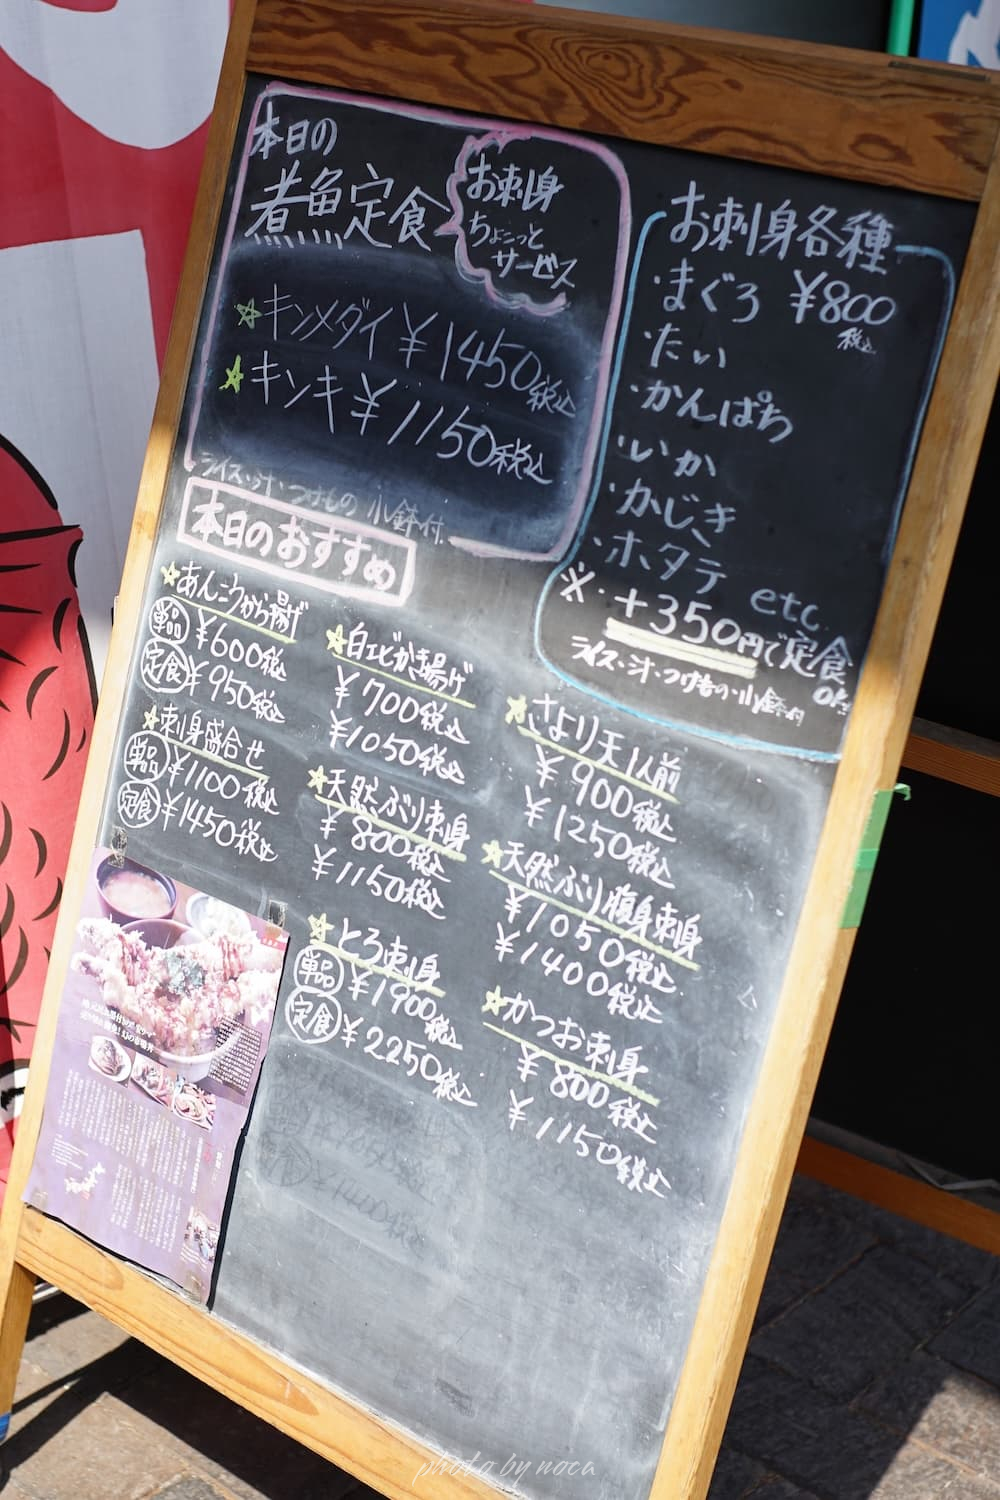 本日の
煮魚定食
お刺身
ちょこっと
サービス
☆キンメダイ ¥1450税込
☆キンキ ¥1150税込
ライス・汁・つけもの 小鉢付.
お刺身各種
・まぐろ ¥800
税込
・たい
・かんぱち
・いか
・かじき
・ホタテ etc.
※・+350円で定食
ok!!
ライス・汁・つけもの・小鉢付
本日のおすすめ
☆あんこうから揚げ
単品 ¥600税込
定食 ¥950税込
☆刺身盛合せ
単品 ¥1100税込
定食 ¥1450税込
☆白エビかき揚げ
¥700税込
¥1050税込
☆天然ぶり刺身
¥800税込
¥1150税込
☆とろ刺身
単品 ¥1900税込
定食 ¥2250税込
☆さより天1人前
¥900税込
¥1250税込
☆天然ぶり腹身刺身
¥1050税込
¥1400税込
☆かつお刺身
¥800税込
¥1150税込
photo by noca